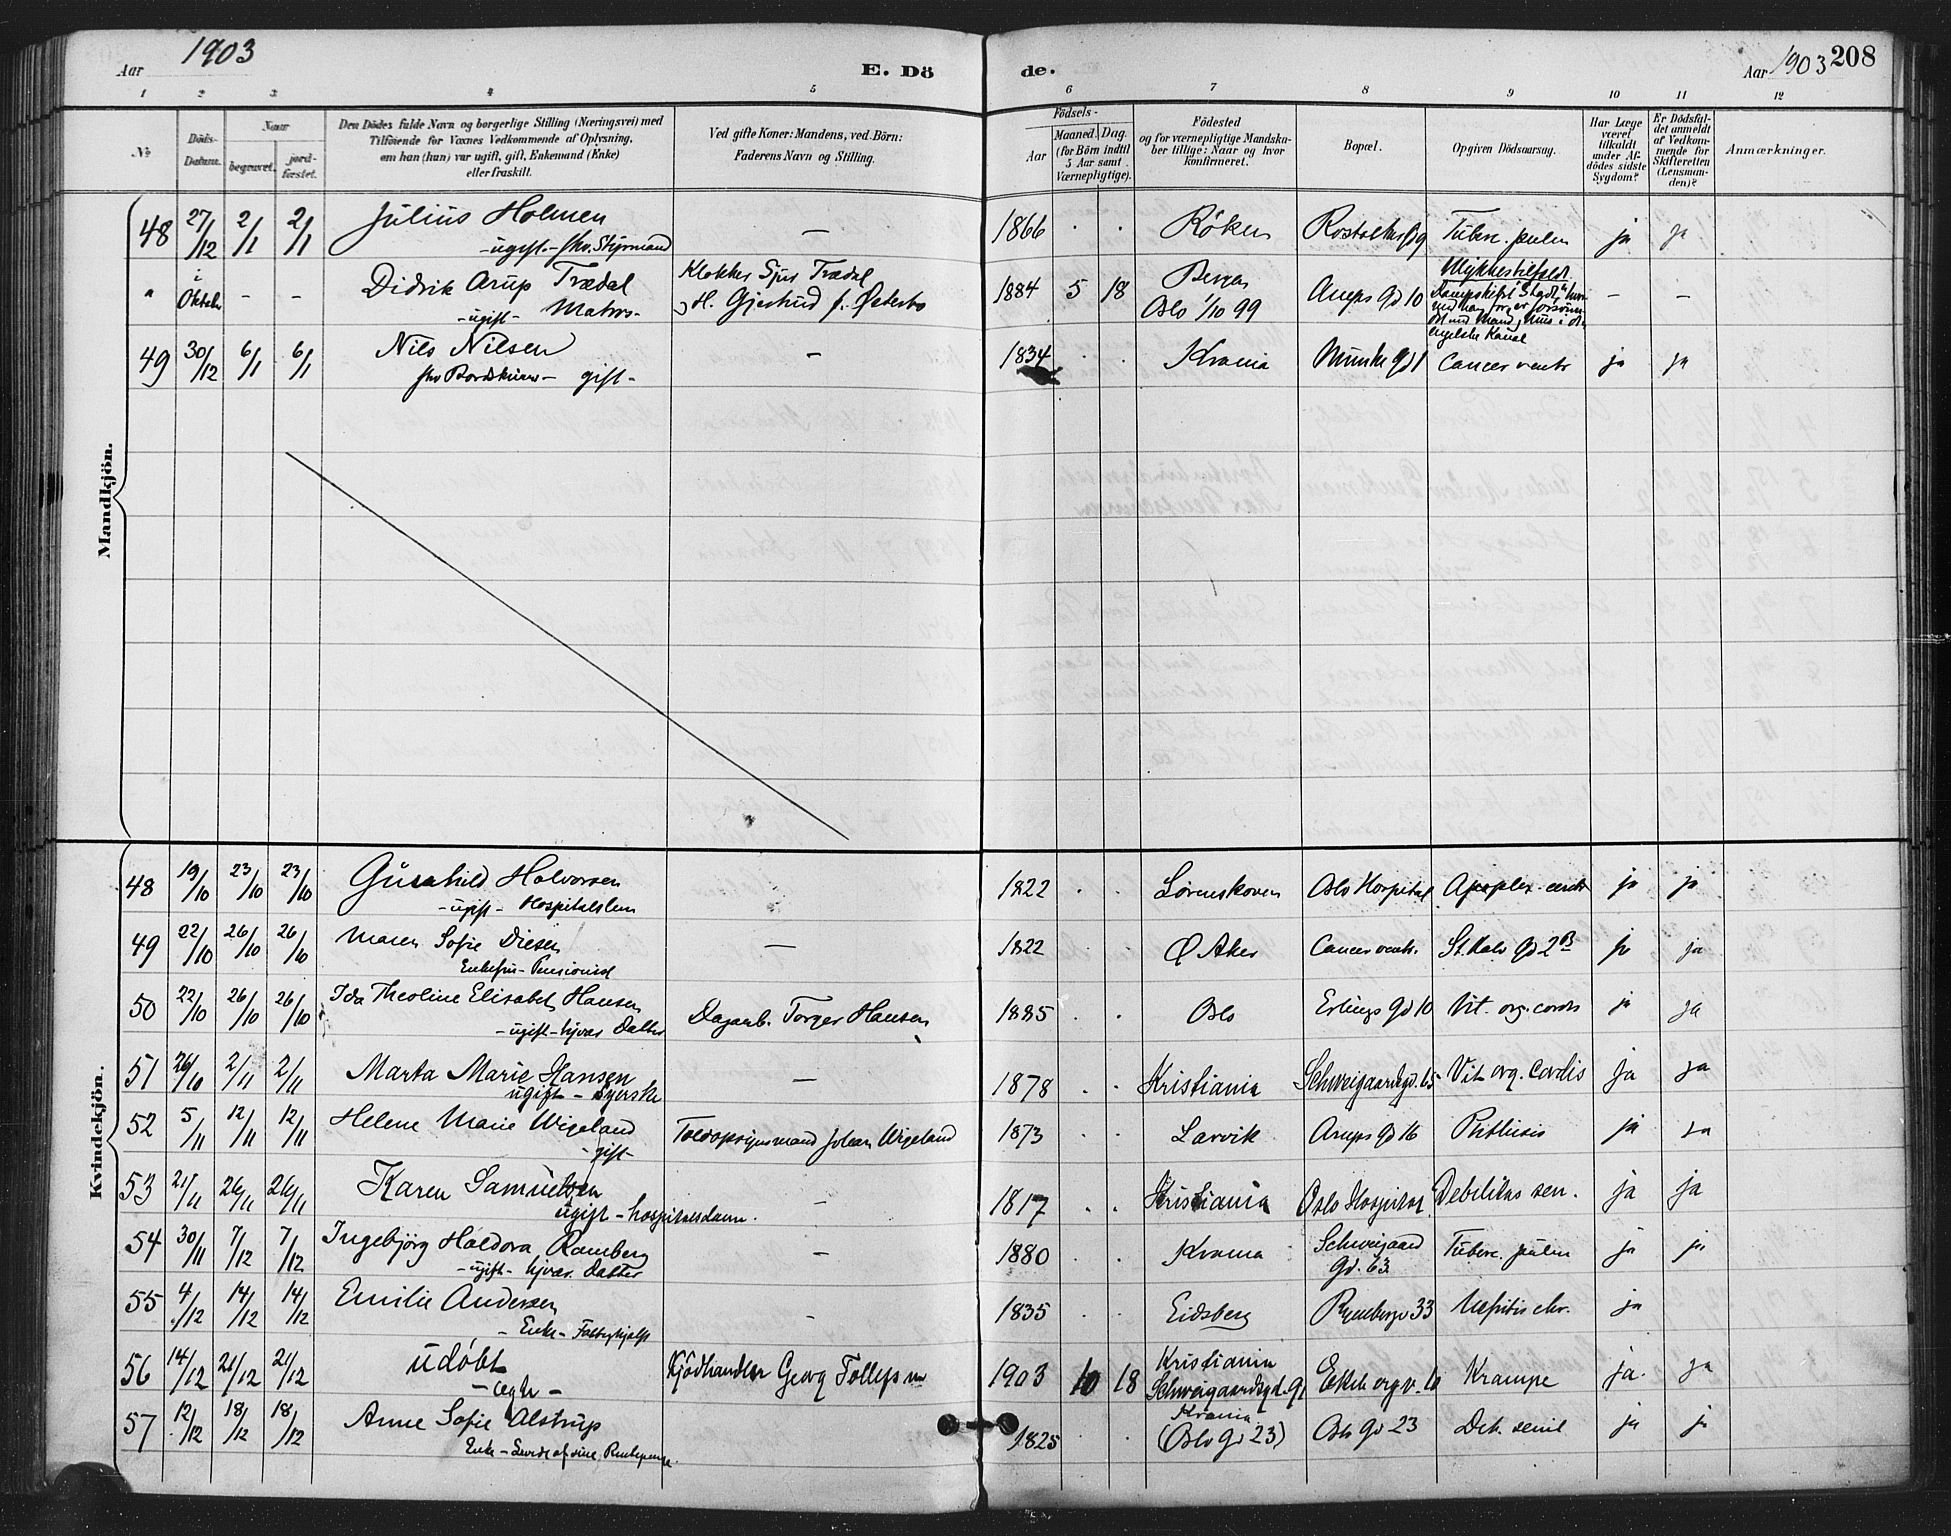 Aar 1903
E. Dö
de.
Aar 1903 208
1 2 3 4 5 6 7 8 9 10 11 12
No
Döds-Datum.
Naar
begravet.
jordfæstet.
Den Dödes fulde Navn og borgerlige Stilling (Næringsvei) med
Tilföiende for Voxnes Vedkommende af Oplysning,
om han (hun) var ugift, gift, Enkemand (Enke)
eller fraskilt.
Ved gifte Koner: Mandens, ved Börn:
Faderens Navn og Stilling.
Födsels-
Aar
Maaned. Dag.
(for Börn indtil
5 Aar samt
Værnepligtige).
Födested
og for værnepligtige Mandska-
ber tillige: Naar og hvor
konfirmeret.
Bopæl.
Opgiven Dödsaarsag.
Har Læge
været
tilkaldt
under Af-
dödes sidste
Sygdom?
Er Dödsfal-
det anmeldt
af Vedkom-
mende for
Skifteretten
(Lensman-
den)?
Anmærkninger.
Mandkjön.
48 27/12 2/1 2/1 Julius Holmen — 1866 . . Röken 9 Tuberc. pulm ja ja
- ugift - fhv. Styrmand
" i Oktober - - Didrik Arup Trædal Klokker Sjur Trædal 1884 5 18 Bergen Arups Gd 10 — —
- ugift - Matros - H. Gjertrud f. Østerbø Oslo 1/10 99
engelske Kanal
49 30/12 6/1 6/1 Nils Nilsen — 1834 . . Krania Munke Gd 1 Cancer ventr ja ja
- gift -
Kvindekjön.
48 19/10 23/10 23/10 Gunhild Halvorsen 1822 . . Lørenskoven Oslo Hospital Apoplex. cerebr ja ja
- ugift - Hospitalslem
49 22/10 26/10 26/10 Maren Sofie Diesen — 1822 . . Ø Aker Cancer ventr. St. Halv Gd 2B ja ja
Enkefru - Pensionist
50 22/10 26/10 26/10 Ida Theoline Elisabet Hansen Dagarb. Torger Hansen 1885 . . Oslo Erlings Gd 10 Vit. org. cordis ja ja
- ugift - hjvær. Datter
51 26/10 2/11 2/11 Marta Marie Hansen — 1878 . . Kristiania Schweigaardsgd. 65 Vit. org. Cordis ja ja
ugift - Syerske
52 5/11 12/11 12/11 Helene Marie Wigeland Toldopsynsmand Johan Wigeland 1873 . . Larvik Arups Gd 16 Phthisis ja ja
- gift -
53 21/11 26/11 26/11 Karen Samuelsen — 1817 . . Kristiania Oslo Hospital Debilitas sen. ja ja
ugift - hospitalslem.
54 30/11 7/12 7/12 Ingebjörg Haldora Ramberg — 1880 . . Krania Schweigaard Gd. 63 Tuberc. pulm ja ja
- ugift - hjvær. datter
55 4/12 14/12 14/12 Emilie Andersen - 1835 . . Eidsberg 33 Nefritis chr. ja
- Enke - Fattighjelp
56 14/12 21/12 21/12 udöbt Kjödhandler Georg Tollefsen 1903 10 18 Kristiania Schweigaardsgd. 91 Krampe ja. ja
- ægte -
57 12/12 18/12 18/12 Anne Sofie Alstrup 1825 . . Krania (Oslo Gd 23) Oslo Gd 23 Deb. senil ja ja
Enke - Levede af sine Rentepenge.